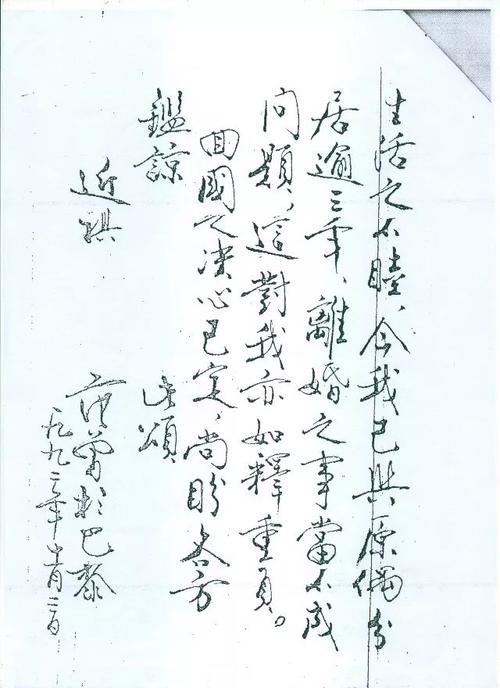 生活之不睦，今我已與原偶分
居逾三年，離婚之事當不成
問題，這對我亦如釋重負。
回國之決心已定，尚盼各方
鑑諒 此頌
近祺
范曾於巴黎
一九九二年 月三日